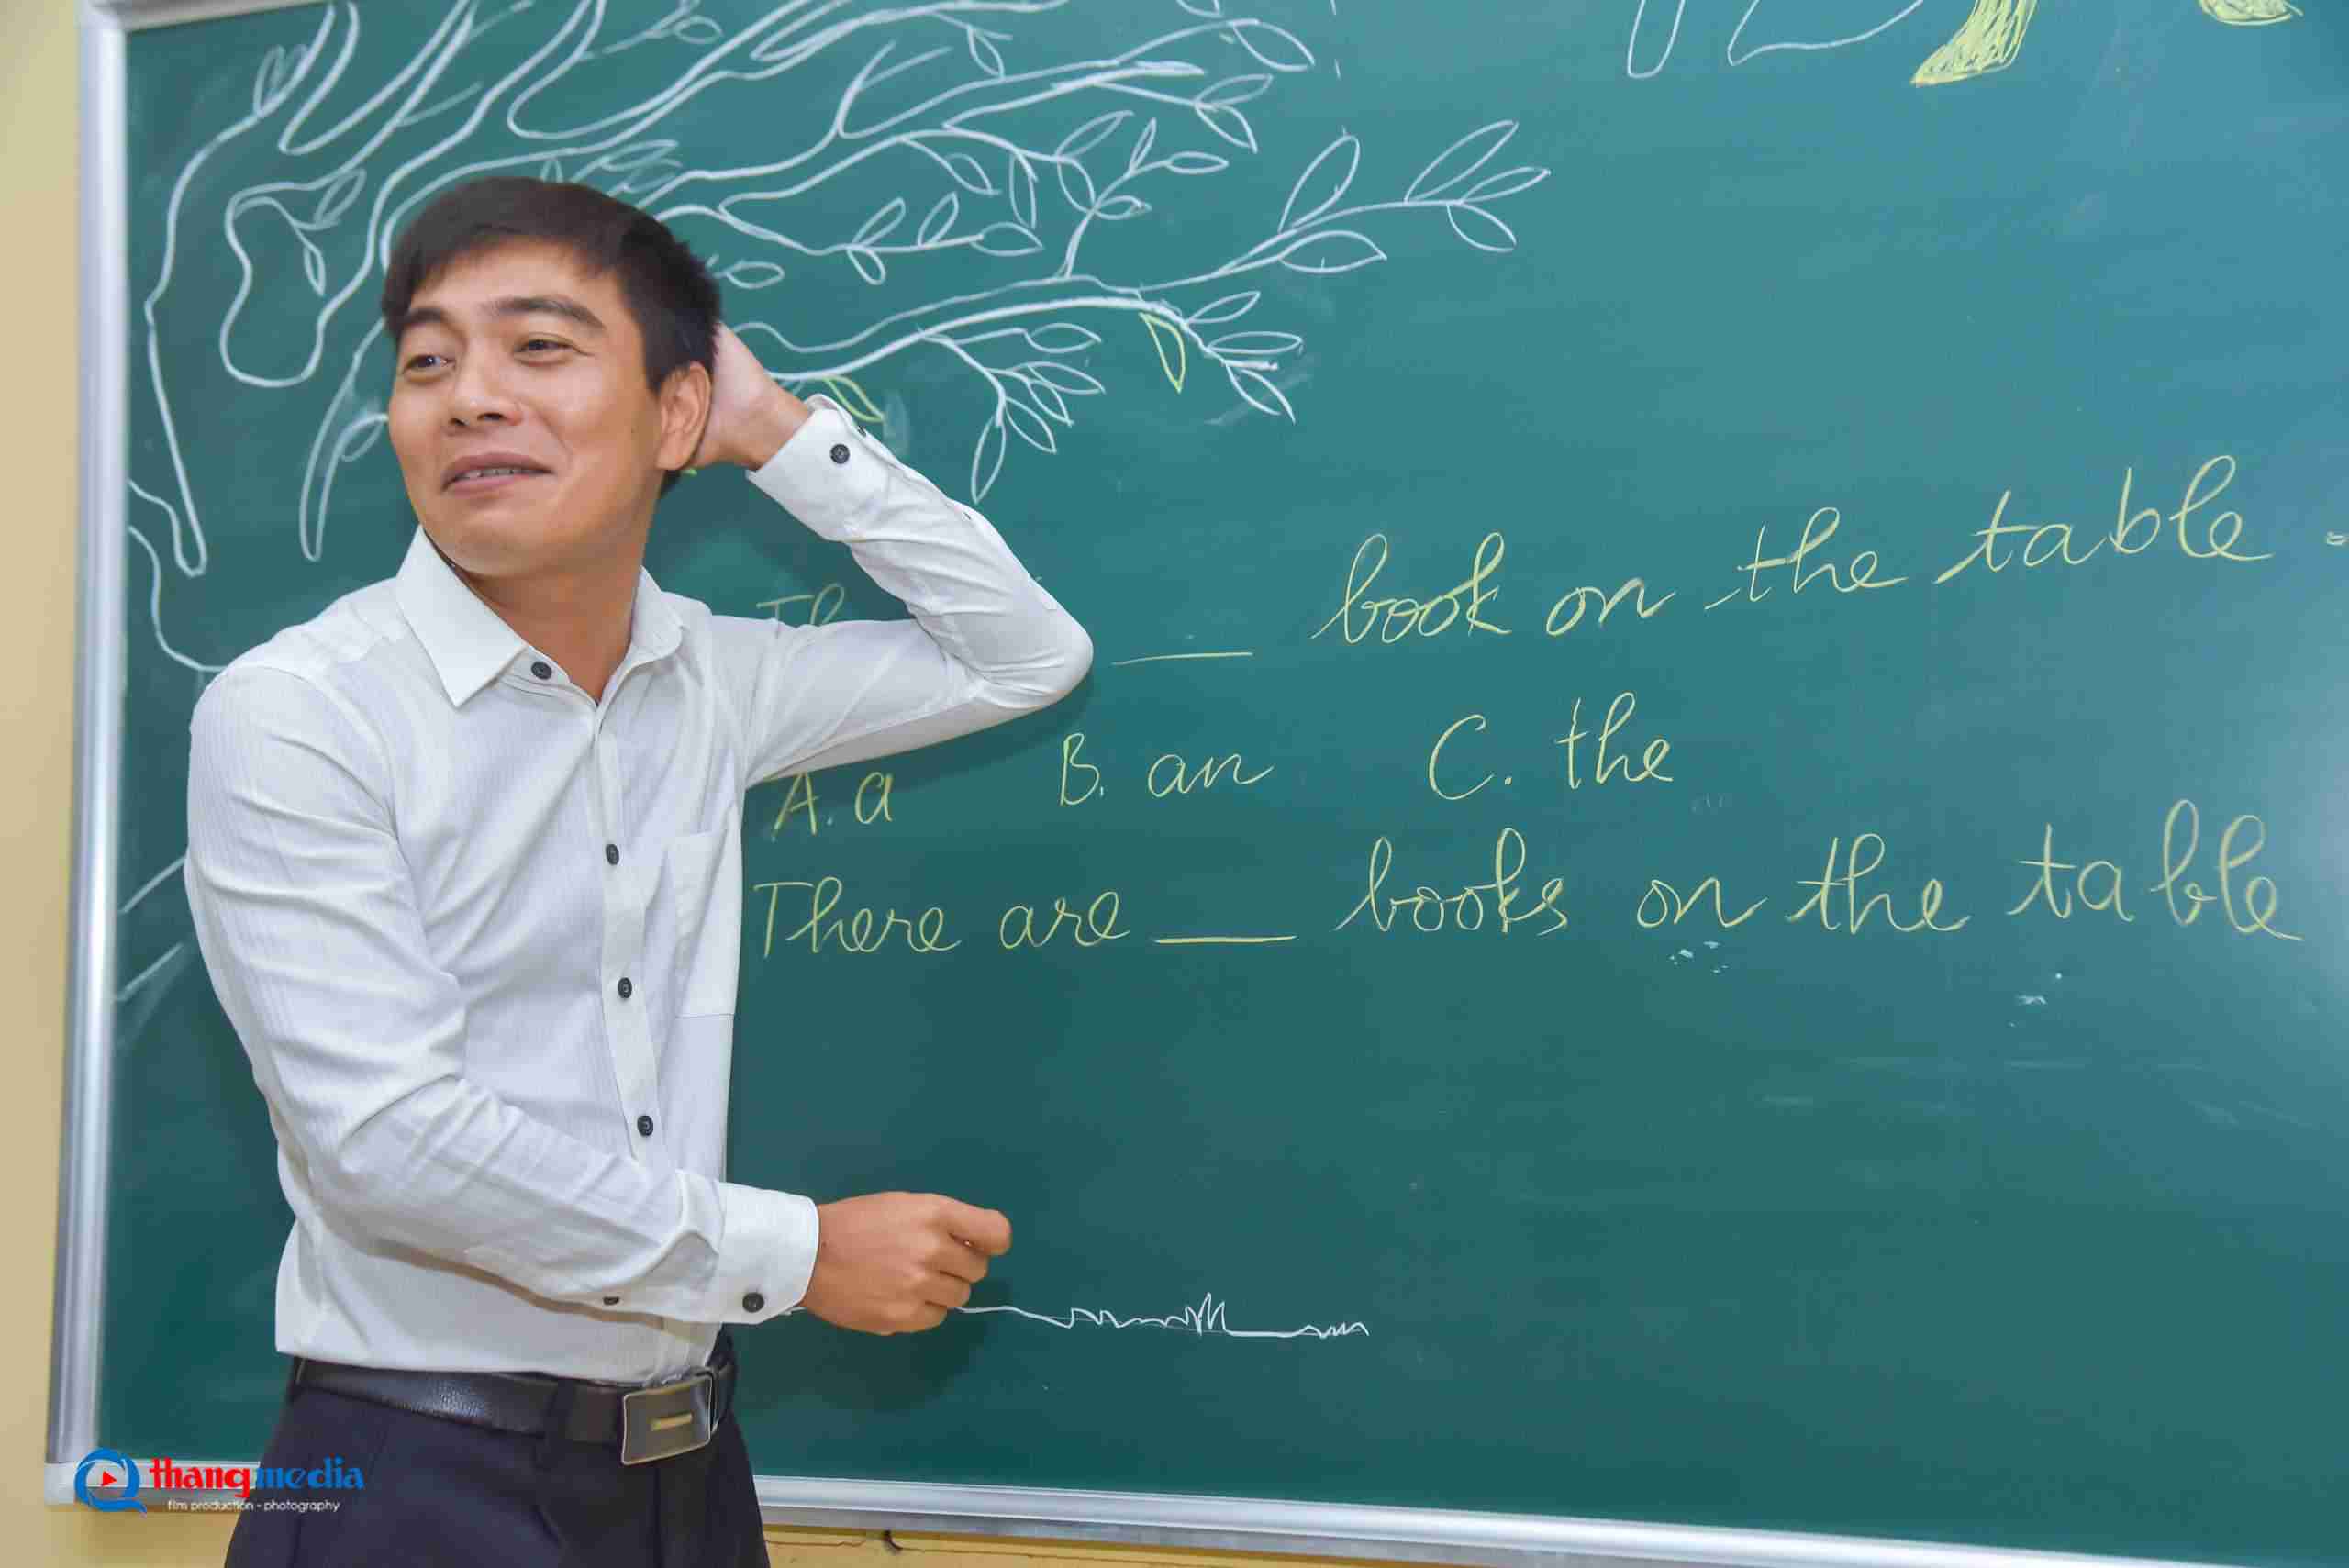 ___ book on the table.
A. a B. an C. the
There are ___ books on the table
thangmedia
film production - photography